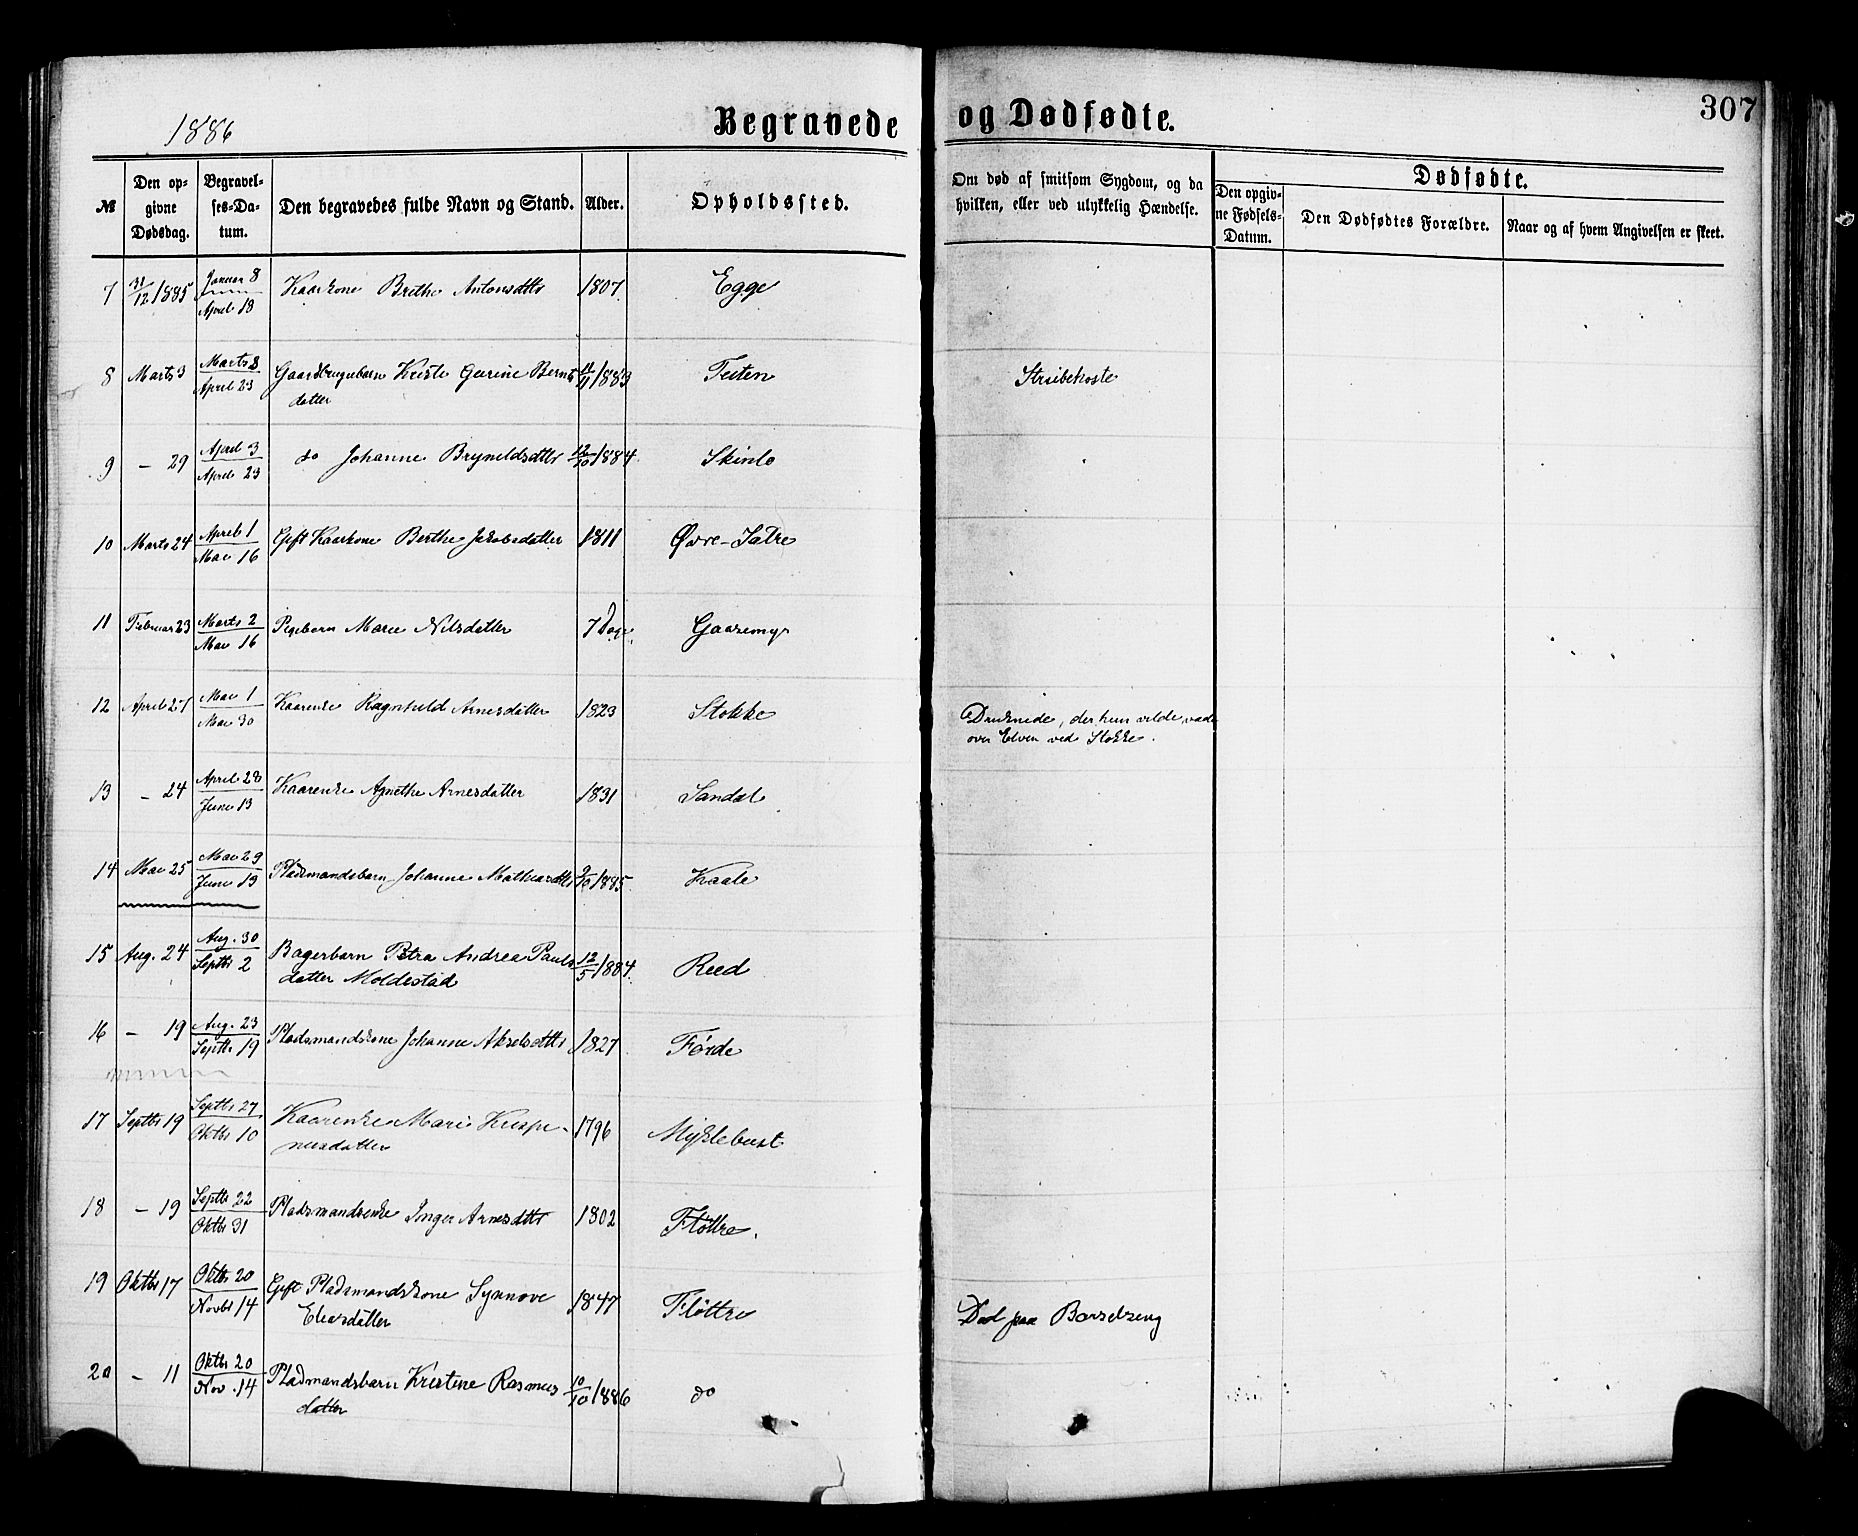 1886 Begravede og Dødfødte. 307
№ Den opgivne Dødsdag. Begravelses-Datum. Den begravedes fulde Navn og Stand. Alder. Opholdssted. Om død af smitsom Sygdom, og da hvilken, eller ved ulykkelig Hændelse. Dødfødte. Den opgivne Fødsels-Datum. Den Dødfødtes Forældre. Naar og af hvem Angivelsen er skeet.
7 31/12 1885 Januar 8 / April 18 Kaarkone Brethe Antonsdttr 1807 Egge
8 Marts 3 Marts 8 / April 23 Gaardbrugerbarn Kriste Gurine Bernts 11/11 1883 Teiten Strubehoste
datter
9 - 29 April 3 / April 23 do Johanne Bryneldsdttr 12/10 1884 Skinlo
10 Marts 24 April 1 / Mai 16 Gift Kaarkone Berthe Jakobsdatter 1811 Øvre-
11 Februar 23 Marts 2 / Mai 16 Pigebarn Marie Nilsdatter 7 Dage
12 April 27 Mai 1 / Mai 30 Kaarenke Ragnhild Arnesdatter 1823 Stokke Druknede, der hun vilde vade
over Elven ved Stokke.
13 - 24 April 28 / Juni 13 Kaarenke Agnethe Arnesdatter 1831 Sandal
14 Mai 25 Mai 29 / Juni 13 Pladsmandsbarn Johanne 9/10 1885 Kaale
15 Aug. 24 Aug. 30 / Septbr 2 Bagerbarn Petra Andrea Pauls 12/5 1884. Reed
datter Moldestad
16 - 19 Aug. 23 / Septbr 19 Pladsmandskone Johanne Akselsdttr 1827 Førde
17 Septbr 19 Septbr 27 / Oktbr 10 Kaarenke Mari Krispi- 1796 Myklebust
nusdatter
18 - 19 Septbr 22 / Oktbr 31 Pladsmandsenke Inger Arnesdttr 1802 Fløttre.
19 Oktbr 17 Oktbr 20 / Novbr 14 Gift Pladsmandskone Synnove 1847 Fløttre Død paa Barselseng
Eliasdatter
20 - 11 Oktbr 20 / Nov. 14 Pladmandsbarn Kristine Rasmus 10/10 1886 do
datter